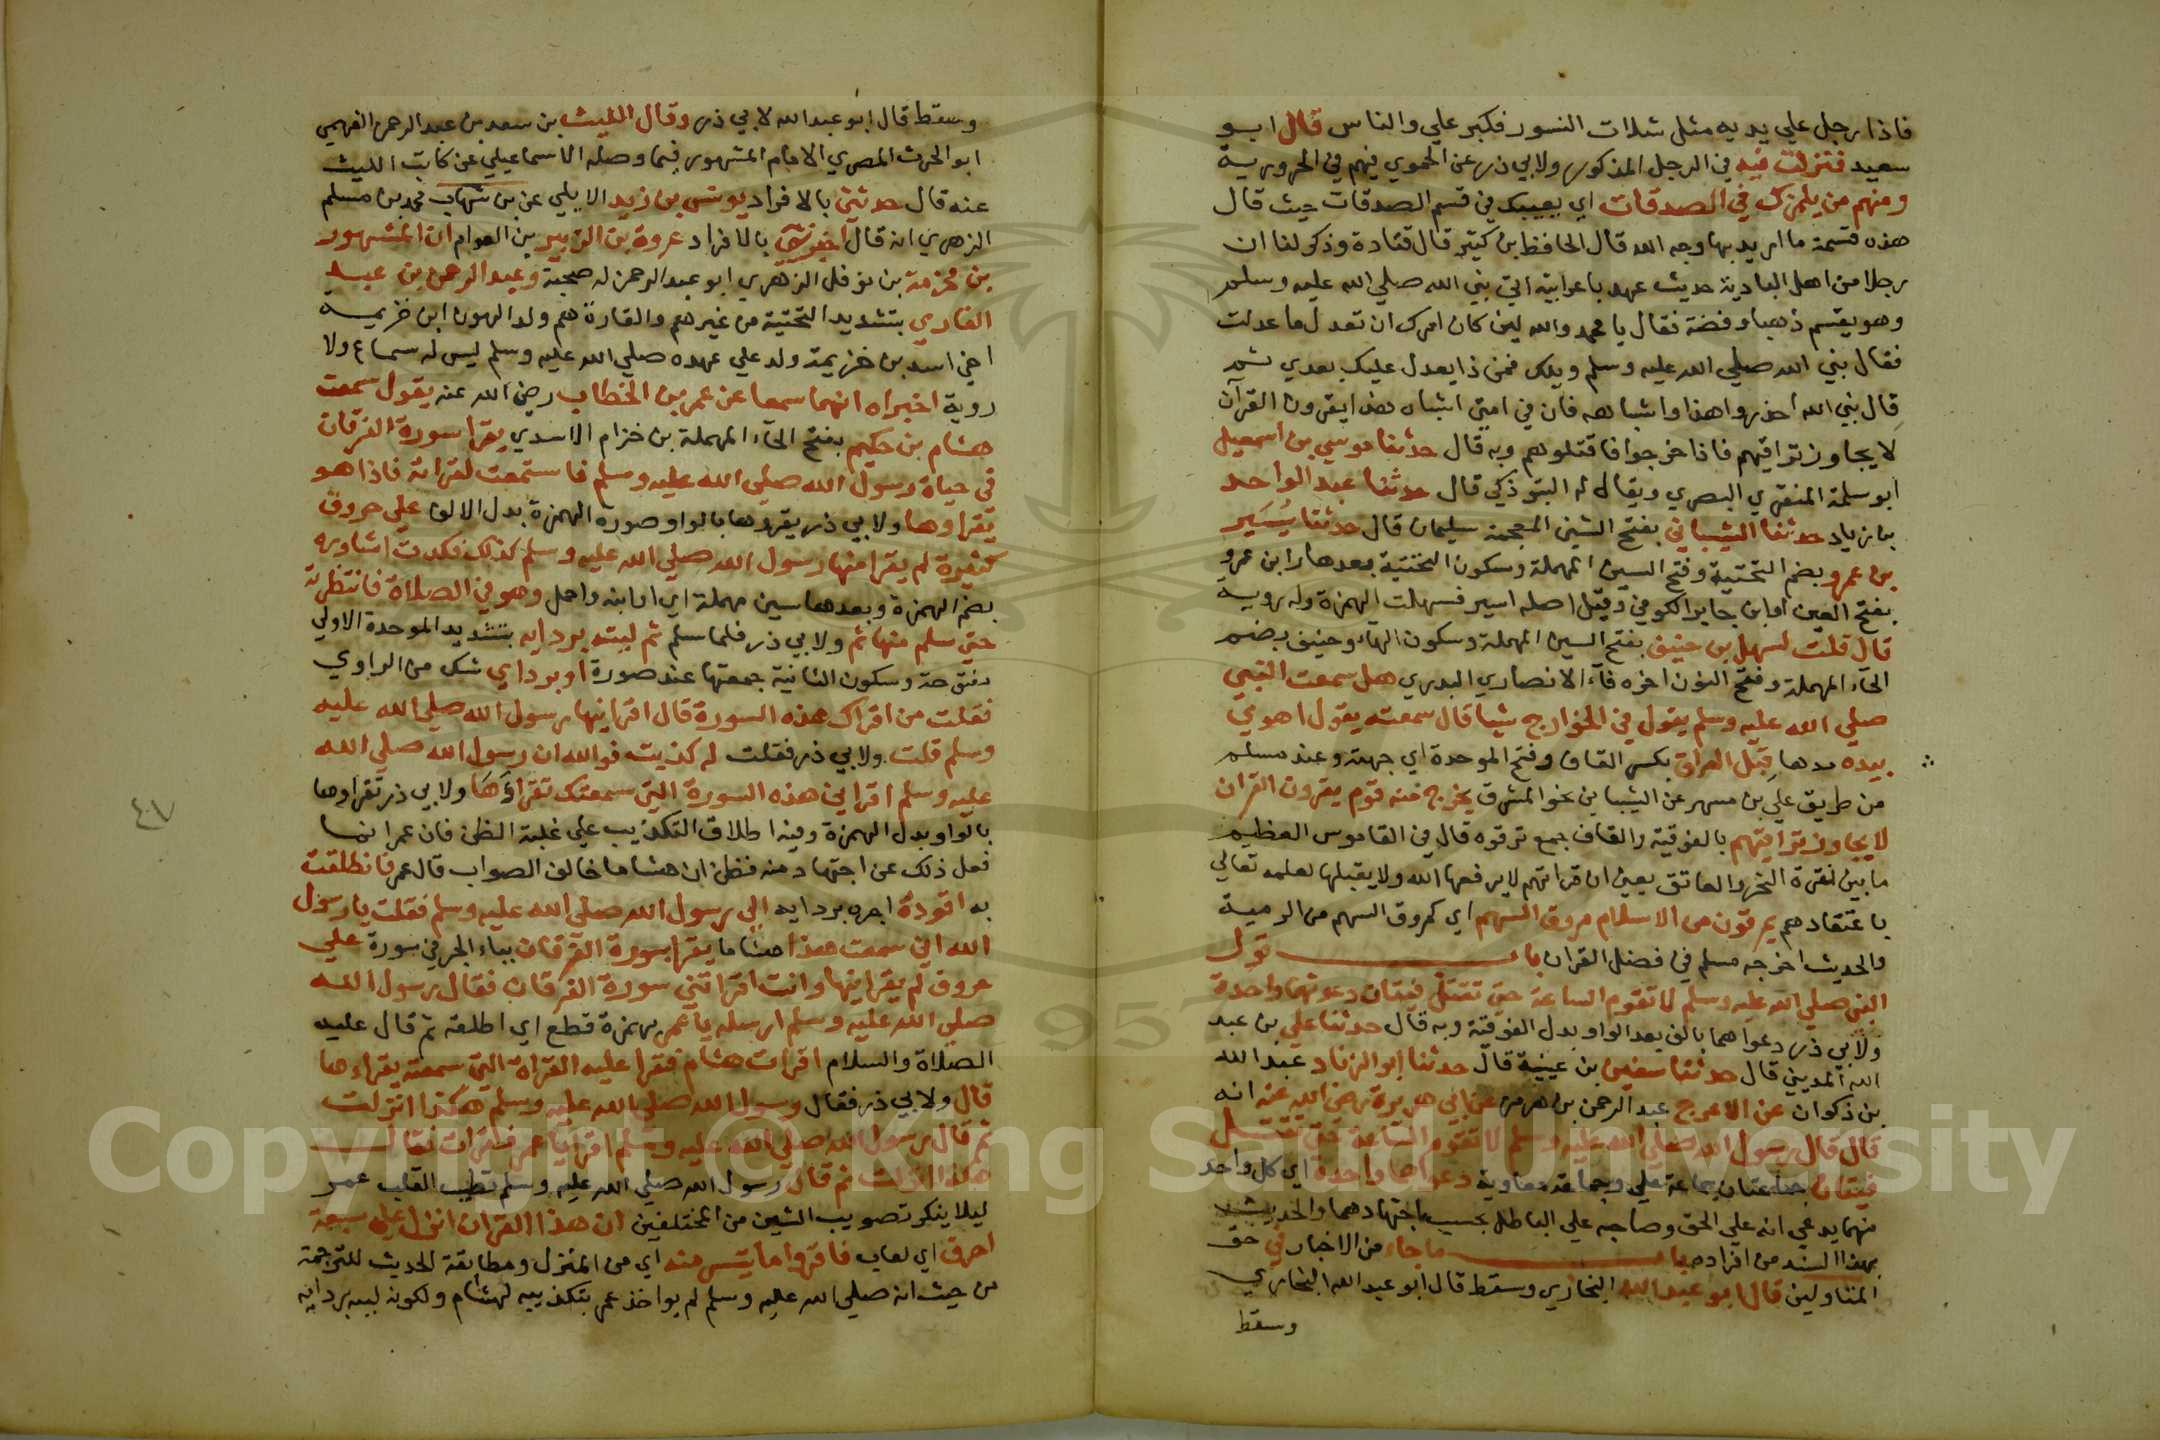 فاذا رجل علي يديه مثل شلات النسور فكبر علي والناس قال ابو
سعيد فنزلت فيه في الرجل المذكور ولابي ذر عن الحموي فيهم في الحرورية
ومنهم من يلمزك في الصدقات اي يعيبك في قسم الصدقات حيث قال
هذه قسمة ما اريد بها وجه الله قال الحافظ بن كثير قال قتادة وذكر لنا ان
رجلا من اهل البادية حديث عهد باعرابية اتي نبي الله صلي الله عليه وسلم
وهو يقسم ذهبا وفضة فقال يا محمد والله لين كان امرك ان تعدل ما عدلت
فقال نبي الله صلي الله عليه وسلم ويلك فمن ذا يعدل عليك بعدي ثم
قال نبي الله احذروا هذا واشباهه فان في امتي اشباه هذا يقرون القرآن
لا يجاوز تراقيهم فاذا خرجوا فاقتلوهم وبه قال حدثنا موسي بن اسمعيل
ابو سلمة المنقري البصري ويقال له التبوذكي قال حدثنا عبد الواحد
بن زياد حدثنا الشيباني بفتح الشين المعجمة سليمان قال حدثنا يُسَير
بن عمرو بضم التحتية وفتح السين المهملة وسكون التحتية بعدها را ابن عمرو
بفتح العين او ابن جابر الكوفي وقيل اصله اسير فسهلت الهمزة وله روية
قال قلت لسهل بن حنيف بفتح السين المهملة وسكون الهاء وحنيف بضم
الحاء المهملة وفتح النون اخره فآء الانصاري البدري هل سمعت النبي
صلي الله عليه وسلم يقول في الخوارج شيا قال سمعته يقول اهوي
بيده مدها قِبَل العراق بكسر القاف وفتح الموحدة اي جهته وعند مسلم
من طريق علي بن مسهر عن الشيباني نحو المشرق يخرج منه قوم يقرون القران
لا يجاوز تراقيهم بالفوقية والقاف جمع ترقوه قال في القاموس العظيم
ما بين ثغرة النحر والعاتق يعني ان قراتهم لا يرفعها الله ولا يقبلها لعلمه تعالي
باعتقادهم يمرقون من الاسلام مروق السهم اي كمروق السهم من الرمية
والحديث اخرجه مسلم في فضل القران باب قول
النبي صلي الله عليه وسلم لا تقوم الساعة حتي تقتتل فيتان دعوتهما واحدة
ولابي ذر دعواهما بالف بعد الواو بدل الفوقية وبه قال حدثنا علي بن عبد
الله المديني قال حدثنا سفين بن عيينة قال حدثنا ابو الزناد عبد الله
بن ذكوان عن الاعرج عبد الرحمن بن هرمز عن ابي هريرة رضي الله عنه انه
قال قال رسول الله صلي الله عليه وسلم لا تقوم الساعة حتي تقتتل
فيتان جماعتان جماعة علي وجماعة معاوية دعواهما واحدة اي كل واحد
منهما يدعي انه علي الحق وصاحبه علي الباطل بحسب اجتهادهما والحديث
بهذا السند من افراده باب ما جاء من الاخبار في حق
المتاولين قال ابو عبد الله البخاري وسقط قال ابو عبد الله البخاري
وسقط
وسقط قال ابو عبد الله لابي ذر وقال الليث بن سعد بن عبد الرحمن الفهمي
ابو الحرث المصري الامام المشهور فيما وصله الاسماعيلي عن كاتب الليث
عنه قال حدثني بالافراد يونس بن زيد الايلي عن بن شهاب محمد بن مسلم
الزهري انه قال اخبرني بالافراد عروة بن الزبير بن العوام ان المشهور
بن مخرمة بن نوفل الزهري ابو عبد الرحمن له صحبة وعبد الرحمن بن عبد
القاري بتشديد التحتية من غيرهم والقارة هم ولد الهون ابن خزيمة
اخي اسد بن خزيمة ولد علي عهده صلي الله عليه وسلم ليس له سماع ولا
روية اخبراه انهما سمعا عن عمر بن الخطاب رضي الله عنه يقول سمعت
هشام بن حكيم بفتح الحآء المهملة بن خزام الاسدي يقرا سورة الفرقان
في حياة رسول الله صلي الله عليه وسلم فاستمعت لقراته فاذا هو
يقراوها ولابي ذر يقروها بالواو صورة الهمزة بدل الالف علي حروف
كثيرة لم يقرا منها رسول الله صلي الله عليه وسلم كذلك فكدت اشاوره
بضم الهمزة وبعدها سين مهملة اي اواثبه واحمل وهو في الصلاة فانتظرته
حتي سلم منها ثم ولابي ذر فلما سلم ثم لببته بردايه بتشديد الموحدة الاولي
مفتوحة وسكون الثانية جمعتها عند صورة او برداي شك من الراوي
فقلت من اقراك هذه السورة قال اقرانيها رسول الله صلي الله عليه
وسلم قلت ولابي ذر فقلت له كذبت فوالله ان رسول الله صلي الله
عليه وسلم اقراني هذه السورة التي سمعتك تقراؤها ولابي ذر تقراوها
بالواو بدل الهمزة وفيه اطلاق التكذيب علي غلبة الظن فان عمر انما
فعل ذلك عن اجتهاد منه فظن ان هشاما خالف الصواب قال عمر فانطلقت
به اقودة اجره بردايه الي رسول الله صلي الله عليه وسلم فقلت يا رسول
الله اني سمعت هذا هشاما يقرا بسورة الفرقان بباء الجر في سورة علي
حروف لم يقرانيها وانت اقراتني سورة الفرقان فقال رسول الله
صلي الله عليه وسلم ارسله يا عمر بهمزة قطع اي اطلقه ثم قال عليه
الصلاة والسلام اقرات هشام فقرا عليه القراة التي سمعته يقراءها
قال ولابي ذر فقال رسول الله صلي الله عليه وسلم هكذا انزلت
ثم قال رسول الله صلي الله عليه وسلم اقرا يا عمر فقرات فقال
هكذا انزلت ثم قال رسول الله صلي الله عليه وسلم تطيب القلب عمر
ليلا ينكر تصويب الشين من المختلفين ان هذا القران انزل علي سبعة
احرف اي لغات فاقروا ما تيسر منه اي من المنزل ومطابقة الحديث للترجمة
من حيث انه صلي الله عليه وسلم لم يواخذ عمر بتكذيبه لهشام ولكونه لببه بردايه
٤٧
Copyright © King Saud University
1957